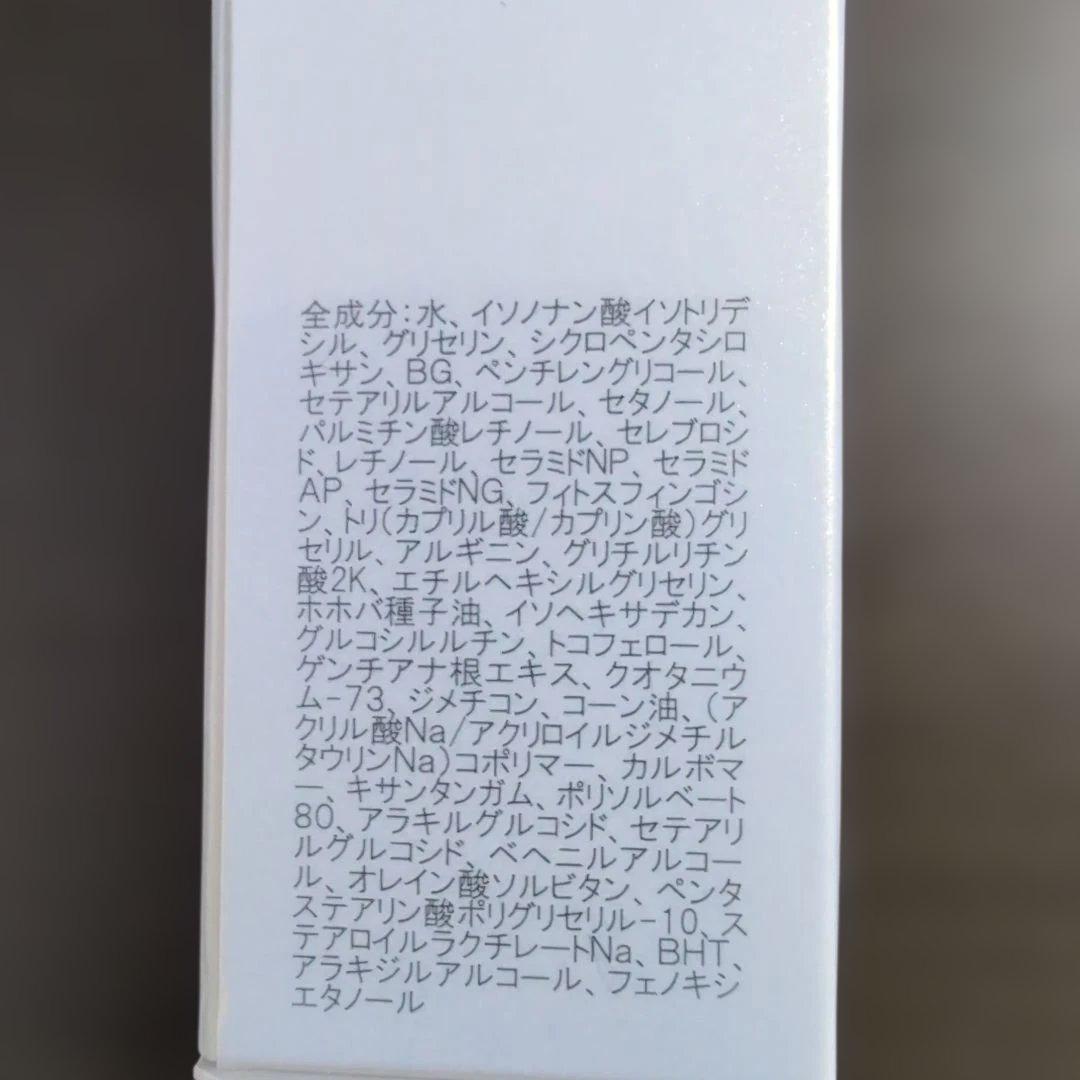 全成分:水、イソノナン酸イソトリデ
シル、グリセリン、シクロペンタシロ
キサン、BG、ペンチレングリコール、
セテアリルアルコール、セタノール、
パルミチン酸レチノール、セレブロシ
ド、レチノール、セラミドNP、セラミド
AP、セラミドNG、フィトスフィンゴシ
ン、トリ(カプリル酸/カプリン酸)グリ
セリル、アルギニン、グリチルリチン
酸2K、エチルヘキシルグリセリン、
ホホバ種子油、イソヘキサデカン、
グルコシルルチン、トコフェロール、
ゲンチアナ根エキス、クオタニウ
ム-73、ジメチコン、コーン油、(ア
クリル酸Na/アクリロイルジメチル
タウリンNa)コポリマー、カルボマ
ー、キサンタンガム、ポリソルベート
80、アラキルグルコシド、セテアリ
ルグルコシド、ベヘニルアルコー
ル、オレイン酸ソルビタン、ペンタ
ステアリン酸ポリグリセリル-10、ス
テアロイルラクチレートNa、BHT、
アラキジルアルコール、フェノキシ
エタノール